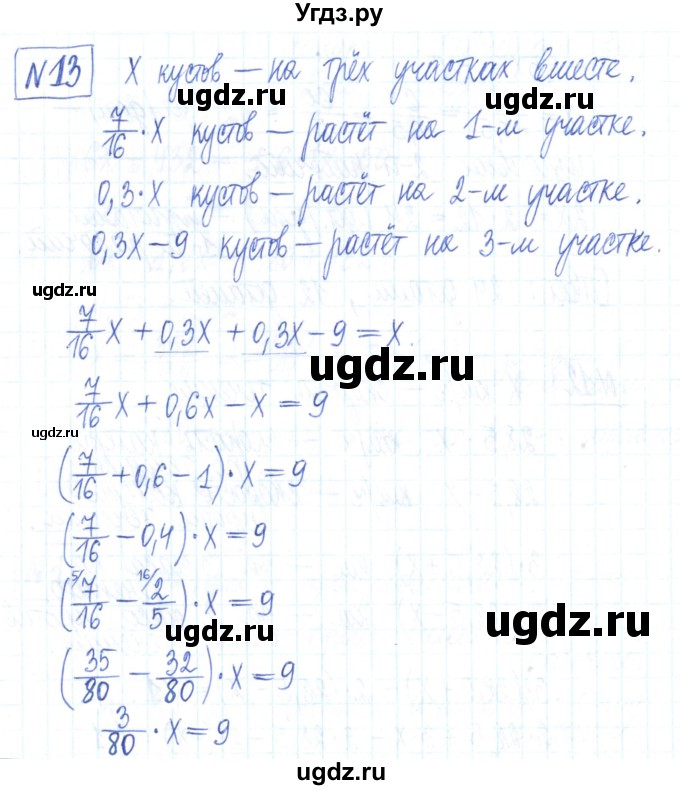 Угдз.ру
N13 X кустов — на трёх участках вместе.
ugdz.ru
7/16 · X кустов — растёт на 1-м участке.
ugdz.ru
0,3 · X кустов — растёт на 2-м участке.
ugdz.ru
0,3X − 9 кустов — растёт на 3-м участке.
ugdz.ru
ugdz.ru
7/16 X + 0,3X + 0,3X − 9 = X.
ugdz.ru
7/16 X + 0,6X − X = 9
ugdz.ru
(7/16 + 0,6 − 1) · X = 9
ugdz.ru
(7/16 − 0,4) · X = 9
(5/ 7/16 − 16/ 2/5) · X = 9
ugdz.ru
ugdz.ru
(35/80 − 32/80) · X = 9
ugdz.ru
3/80 · X = 9
ugdz.ru